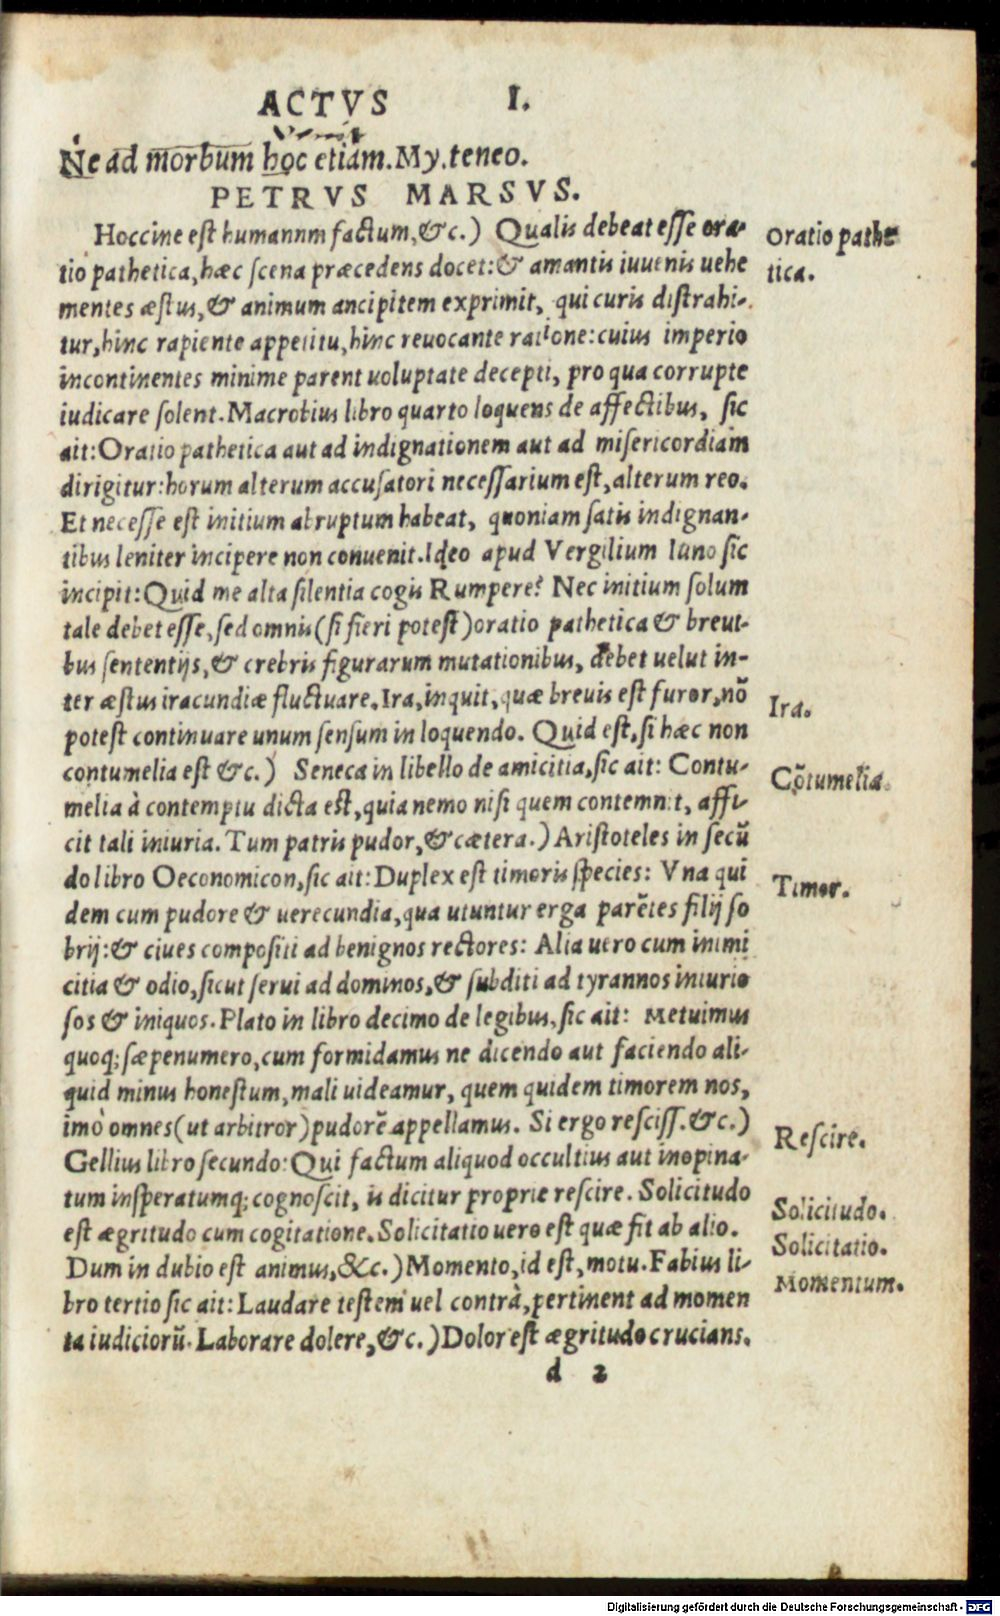 ACTVS I.
Ne ad morbum hoc etiam. My. teneo.
PETRVS MARSVS.
Hoccine est humannm factum, &c.) Qualis debeat esse ora-
tio pathetica, hæc scena præcedens docet: & amantis iuuenis uehe
mentes æstus, & animum ancipitem exprimit, qui curis distrahi-
tur, hinc rapiente appetitu, hinc reuocante ratione: cuius imperio
incontinentes minime parent uoluptate decepti, pro qua corrupte
iudicare solent. Macrobius libro quarto loquens de affectibus, sic
ait: Oratio pathetica aut ad indignationem aut ad misericordiam
dirigitur: horum alterum accusatori necessarium est, alterum reo.
Et necesse est initium abruptum habeat, quoniam satis indignan-
tibus leniter incipere non conuenit. Ideo apud Vergilium Iuno sic
incipit: Quid me alta silentia cogis Rumpere? Nec initium solum
tale debet esse, sed omnis (si fieri potest) oratio pathetica & breui-
bus sententijs, & crebris figurarum mutationibus, debet uelut in-
ter æstus iracundiæ fluctuare. Ira, inquit, quæ breuis est furor, nõ
potest continuare unum sensum in loquendo. Quid est, si hæc non
contumelia est &c.) Seneca in libello de amicitia, sic ait: Contu-
melia à contemptu dicta est, quia nemo nisi quem contemnit, affi-
cit tali iniuria. Tum patris pudor, & cætera.) Aristoteles in secũ
do libro Oeconomicon, sic ait: Duplex est timoris species: Vna qui
dem cum pudore & uerecundia, qua utuntur erga parẽtes filij so
brij: & ciues compositi ad benignos rectores: Alia uero cum inimi
citia & odio, sicut serui ad dominos, & subditi ad tyrannos iniurio
sos & iniquos. Plato in libro decimo de legibus, sic ait: Metuimus
quoq; sæpenumero, cum formidamus ne dicendo aut faciendo ali-
quid minus honestum, mali uideamur, quem quidem timorem nos,
imò omnes (ut arbitror) pudorẽ appellamus. Si ergo resciss. &c.)
Gellius libro secundo: Qui factum aliquod occultius aut inopina-
tum insperatumq; cognoscit, is dicitur proprie rescire. Solicitudo
est ægritudo cum cogitatione. Solicitatio uero est quæ fit ab alio.
Dum in dubio est animus, &c.) Momento, id est, motu. Fabius li-
bro tertio sic ait: Laudare testem uel contrà, pertinent ad momen
ta iudiciorũ. Laborare dolere, &c.) Dolor est ægritudo crucians.
d 2
Oratio pathe
tica.
Ira.
Cõtumelia.
Timor.
Rescire.
Solicitudo.
Solicitatio.
Momentum.
Digitalisierung gefördert durch die Deutsche Forschungsgemeinschaft - DFG